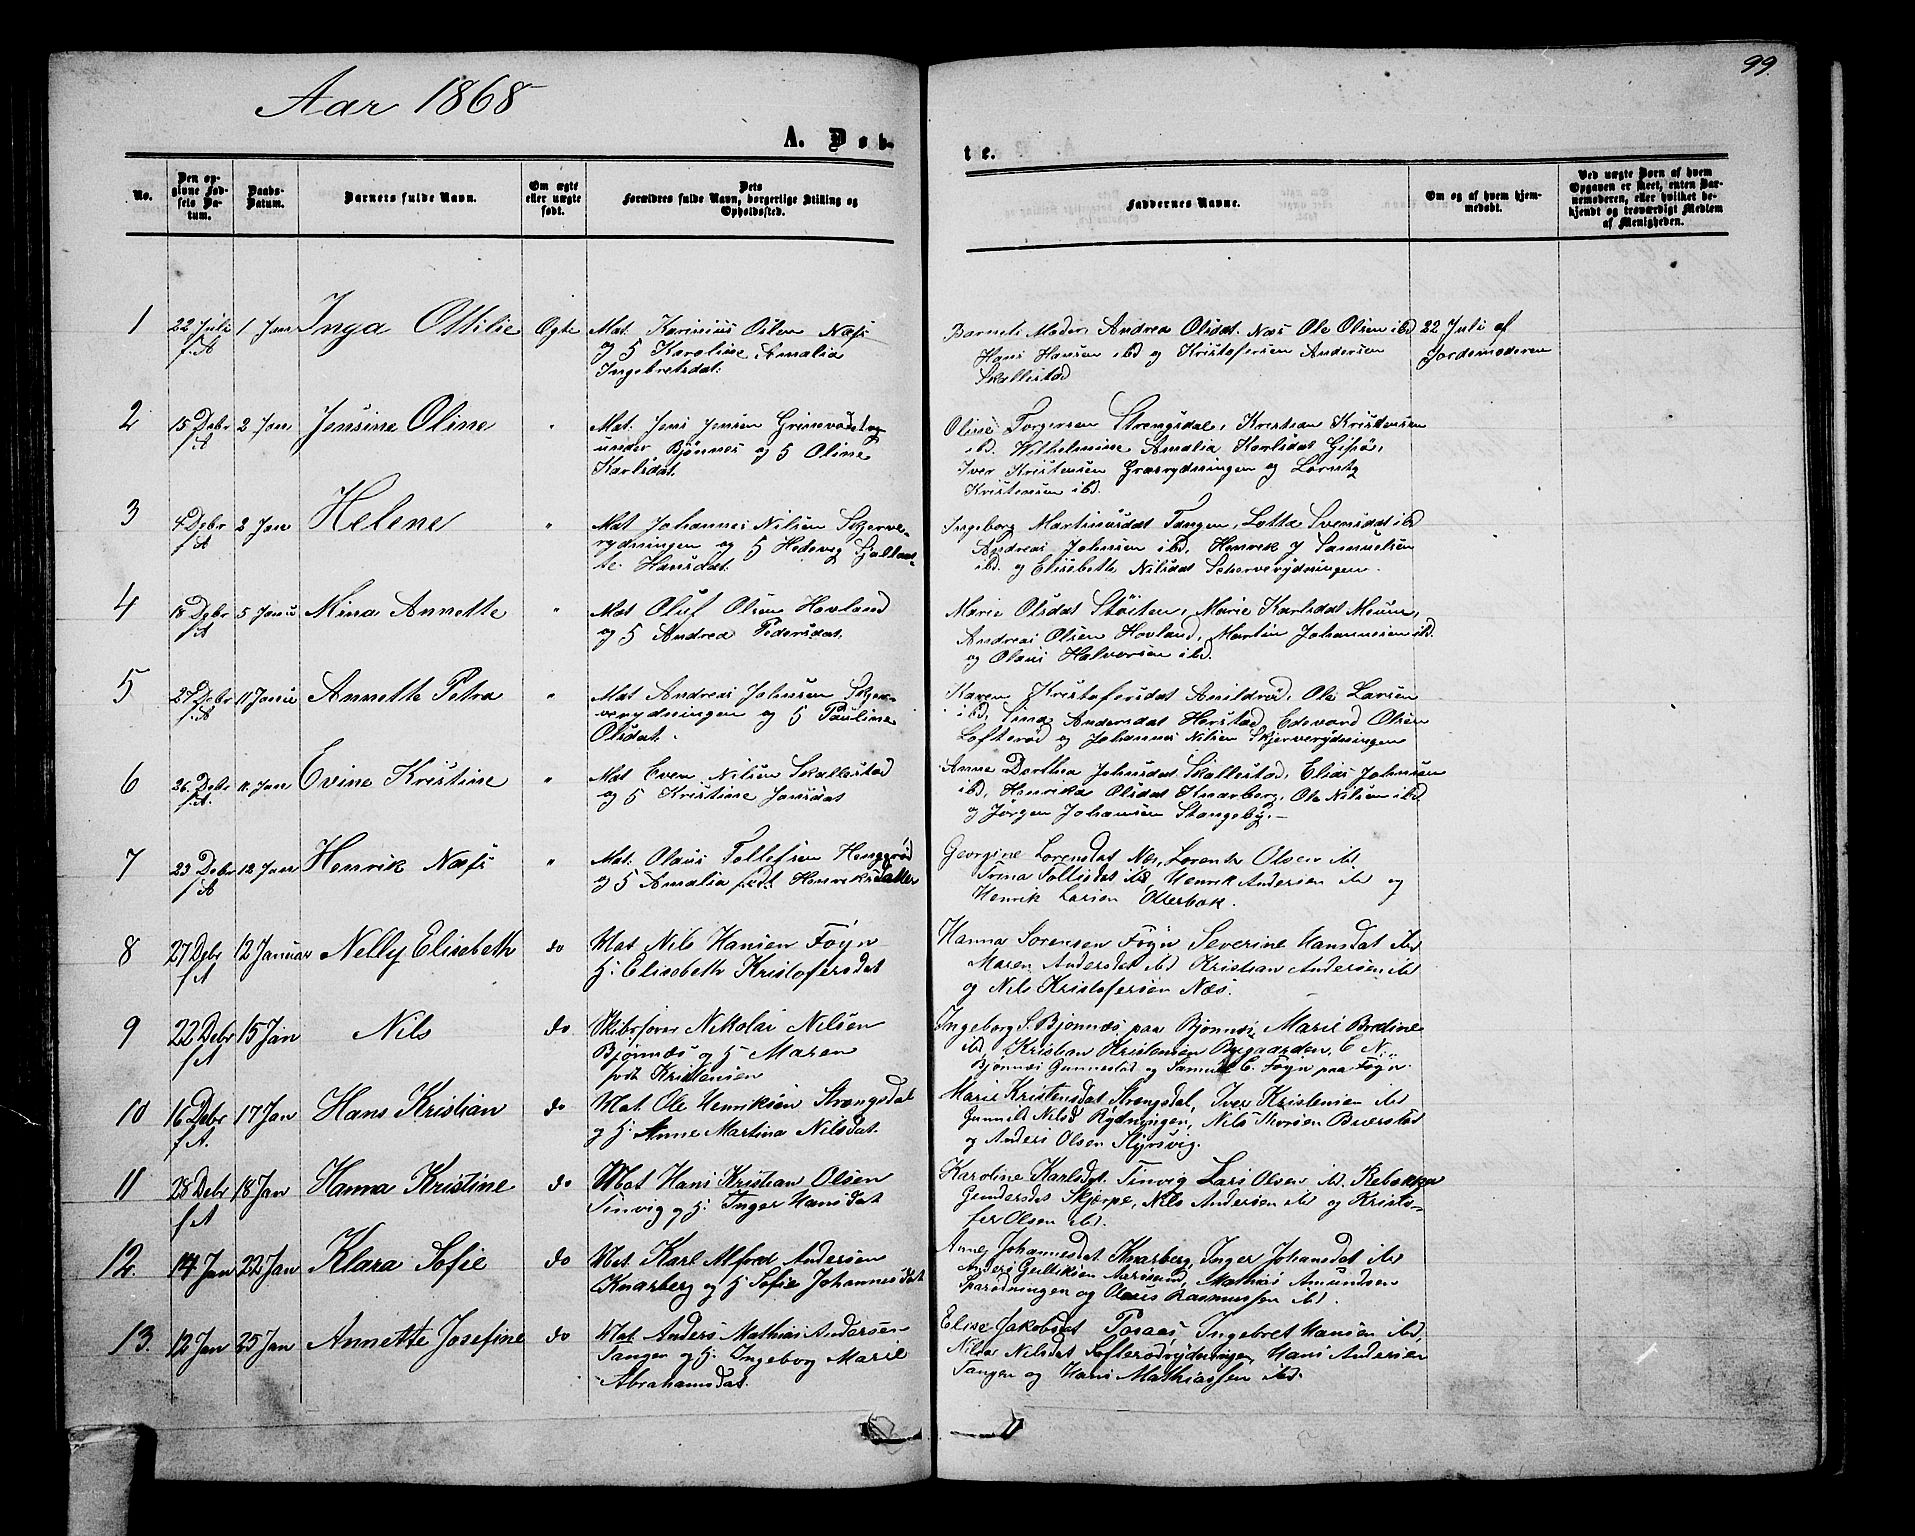 99.
Aar 1868
A. Døb-
te.
No.
Den op-
givne Fød-
sels Da-
tum.
Daabs-
Datum.
Barnets fulde Navn.
Om ægte
eller uægte
født.
Dets
Forældres fulde Navn, borgerlige Stilling og
Opholdssted.
Faddernes Navne.
Om og af hvem hjem-
medøbt.
Ved uægte Børn af hvem
Opgaven er skeet, enten Bar-
nemoderen, eller hvilket be-
kjendt og troværdigt Medlem
af Menigheden.
1 22 Juli 1 Jan Inga Ottilie Ægte Mat. Karinius Olsen Næss
f.A og H Karoline Amalia
Ingebretsdat.
Barnets Moder, Andrea Olsdat. Næs Ole Olsen ibd 22 Juli af
Hans Hansen ibd og Kristofersen Andersen Jordemoderen
Skallestad
2 15 Debr 2 Jan Jensine Oline " Mat. Jens Jensen
f A under Bjønnes og H Oline
Karlsdat.
Oline Torgersen Strengsdal, Kristian Kristensen
ibd. Wilhelmine Amalia Karlsdat Gipø,
Iver Kristensen Græsrydningen og Lorentz
Kristensen ibd.
3 4 Debr 2 Jan Helene " Mat Johannes Nilsen Skjerve-
f A rydningen og H Hedevig
te Hansdat.
Ingeborg Martinusdat Tangen, Lotta Svensdat ibd
Andreas Johnsen ibd, Henrik J Samuelsen
ibd. og Elisebeth Nilsdat Skjerverydningen.
4 18 Debr 5 Janu Mina Annette " Mat Oluf Olsen Hovland
f A og H Andrea Pedersdat.
Marie Olsdat Støiten, Marie Karlsdat Meum,
Andreas Olsen Hovland, Martin Johannesen ibd.
og Olaus Halvorsen ibd.
5 27 Debr 11 Janu Annette Petra " Mat Andreas Johnsen Skjer-
f.A verydningen og H Pauline
Olsdat.
Karen Kristofersdat Anildrød, Ole Larsen
ibd, Sina Andersdat Harstad, Edevard Olsen
Lofterød og Johannes Nilsen Skjerverydningen
6 26 Debr 11 Jan Evine Kristine " Mat Even Nilsen Skallestad
f.A. og H Kristine Jansdat
Anne Dorthea Johnsdat Skallestad, Elias Johnsen
ibd, Henrika Olsdat Knarberg, Ole Nilsen ibd
og Jørgen Johansen Stangeby.
7 23 Debr 12 Jan Henrik Næss " Mat. Olaus Tollefsen Henggrød
f A og H Amalia født Henriksdatter
Georgine Lorensdat Næs, Lorents Olsen ibd.
Trina Tollisdat ibd, Henrik Andersen ibd og
Henrik Larsen Otterbæk.
8 27 Debr 12 Januar Nelly Elisebeth do Mat Nils Hansen Føyn
f A H: Elisebeth Kristofersdat
Hanna Sørensen Føyn Severine Hansdat ibd
Maren Andersdat ibd Kristian Andersen ibd
og Nils Kristofersen Næs.
9 22 Debr 15 Jan Nils do. Skibsfører Nikolai Nilsen
f A Bjønnæs og H Maren
født Kristensen
Ingeborg S. Bjønnæs paa Bjønnæs Marie Bredine
ibd, Kristian Kristensen Bugaarden, C N.
Bjønnæs Gunnestad og Samuel C. Føyn paa Føyn.
10 16 Debr 17 Jan Hans Kristian do Mat. Ole Henriksen Strengsdal
f A. og H: Anne Martina Nilsdat.
Marie Kristensdat Strengsdal, Iver Kristensen ibd
Gunnild Nilsd Rydningen, Nils Thorsen Buerstad
og Anders Olsen Hyrsvig.
11 28 Debr 18 Jan Hanna Kristine do Mat Hans Kristian Olsen
f A Tinvig og H: Inger Hansdat
Karoline Karlsdat. Tinvig Lars Olsen ibd. Rebekka
Gundersdat Skjerpe, Nils Andersen ibd og Kristo-
fer Olsen ibd.
12. 14 Jan 22 Jan Klara Sofie do Mat. Karl Alfred Andersen
Knarberg og H Sofie Johannesdat
Anne Johannesdat Knarberg, Inger Johansdat ibd
Anders Gulliksen Aarøsund, Mathias Amundsen
og Olaus Rasmussen ibd.
13. 12 Jan 25 Jan Annette Josefine do Mat. Anders Mathias Andersen
Tangen og H: Ingeborg Marie
Abrahamsdat.
Elise Jakobsdat Ingebret Hansen ibd,
Nilsdat Lofterødrydningen, Hans Andersen
Tangen og Hans Mathiassen ibd.